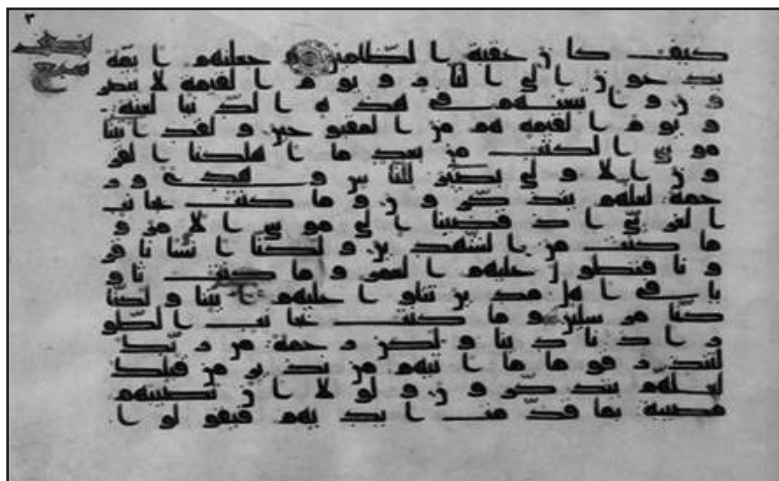 ٣
كيف كان عقبة الظلمين وجعلنهم ائمة
يدعون الى النار ويوم القيمة لا ينصر
ون واتبعنهم في هذه الدنيا لعنة
ويوم القيمة هم من المقبوحين ولقد اتينا
موسى الكتب من بعد ما اهلكنا القر
ون الاولى بصئر للناس وهدى ور
حمة لعلهم يتذكرون وما كنت بجانب
الغربي اذ قضينا الى موسى الامر و
ما كنت من الشهدين ولكنا انشانا قر
ونا فتطاول عليهم العمر وما كنت ثاو
يا في اهل مدين تتلوا عليهم ايتنا ولكنا
كنا مرسلين وما كنت بجانب الطو
ر اذ نادينا ولكن رحمة من ربك
لتنذر قوما ما اتيهم من نذير من قبلك
لعلهم يتذكرون ولولا ان تصيبهم
مصيبة بما قدمت ايديهم فيقولوا